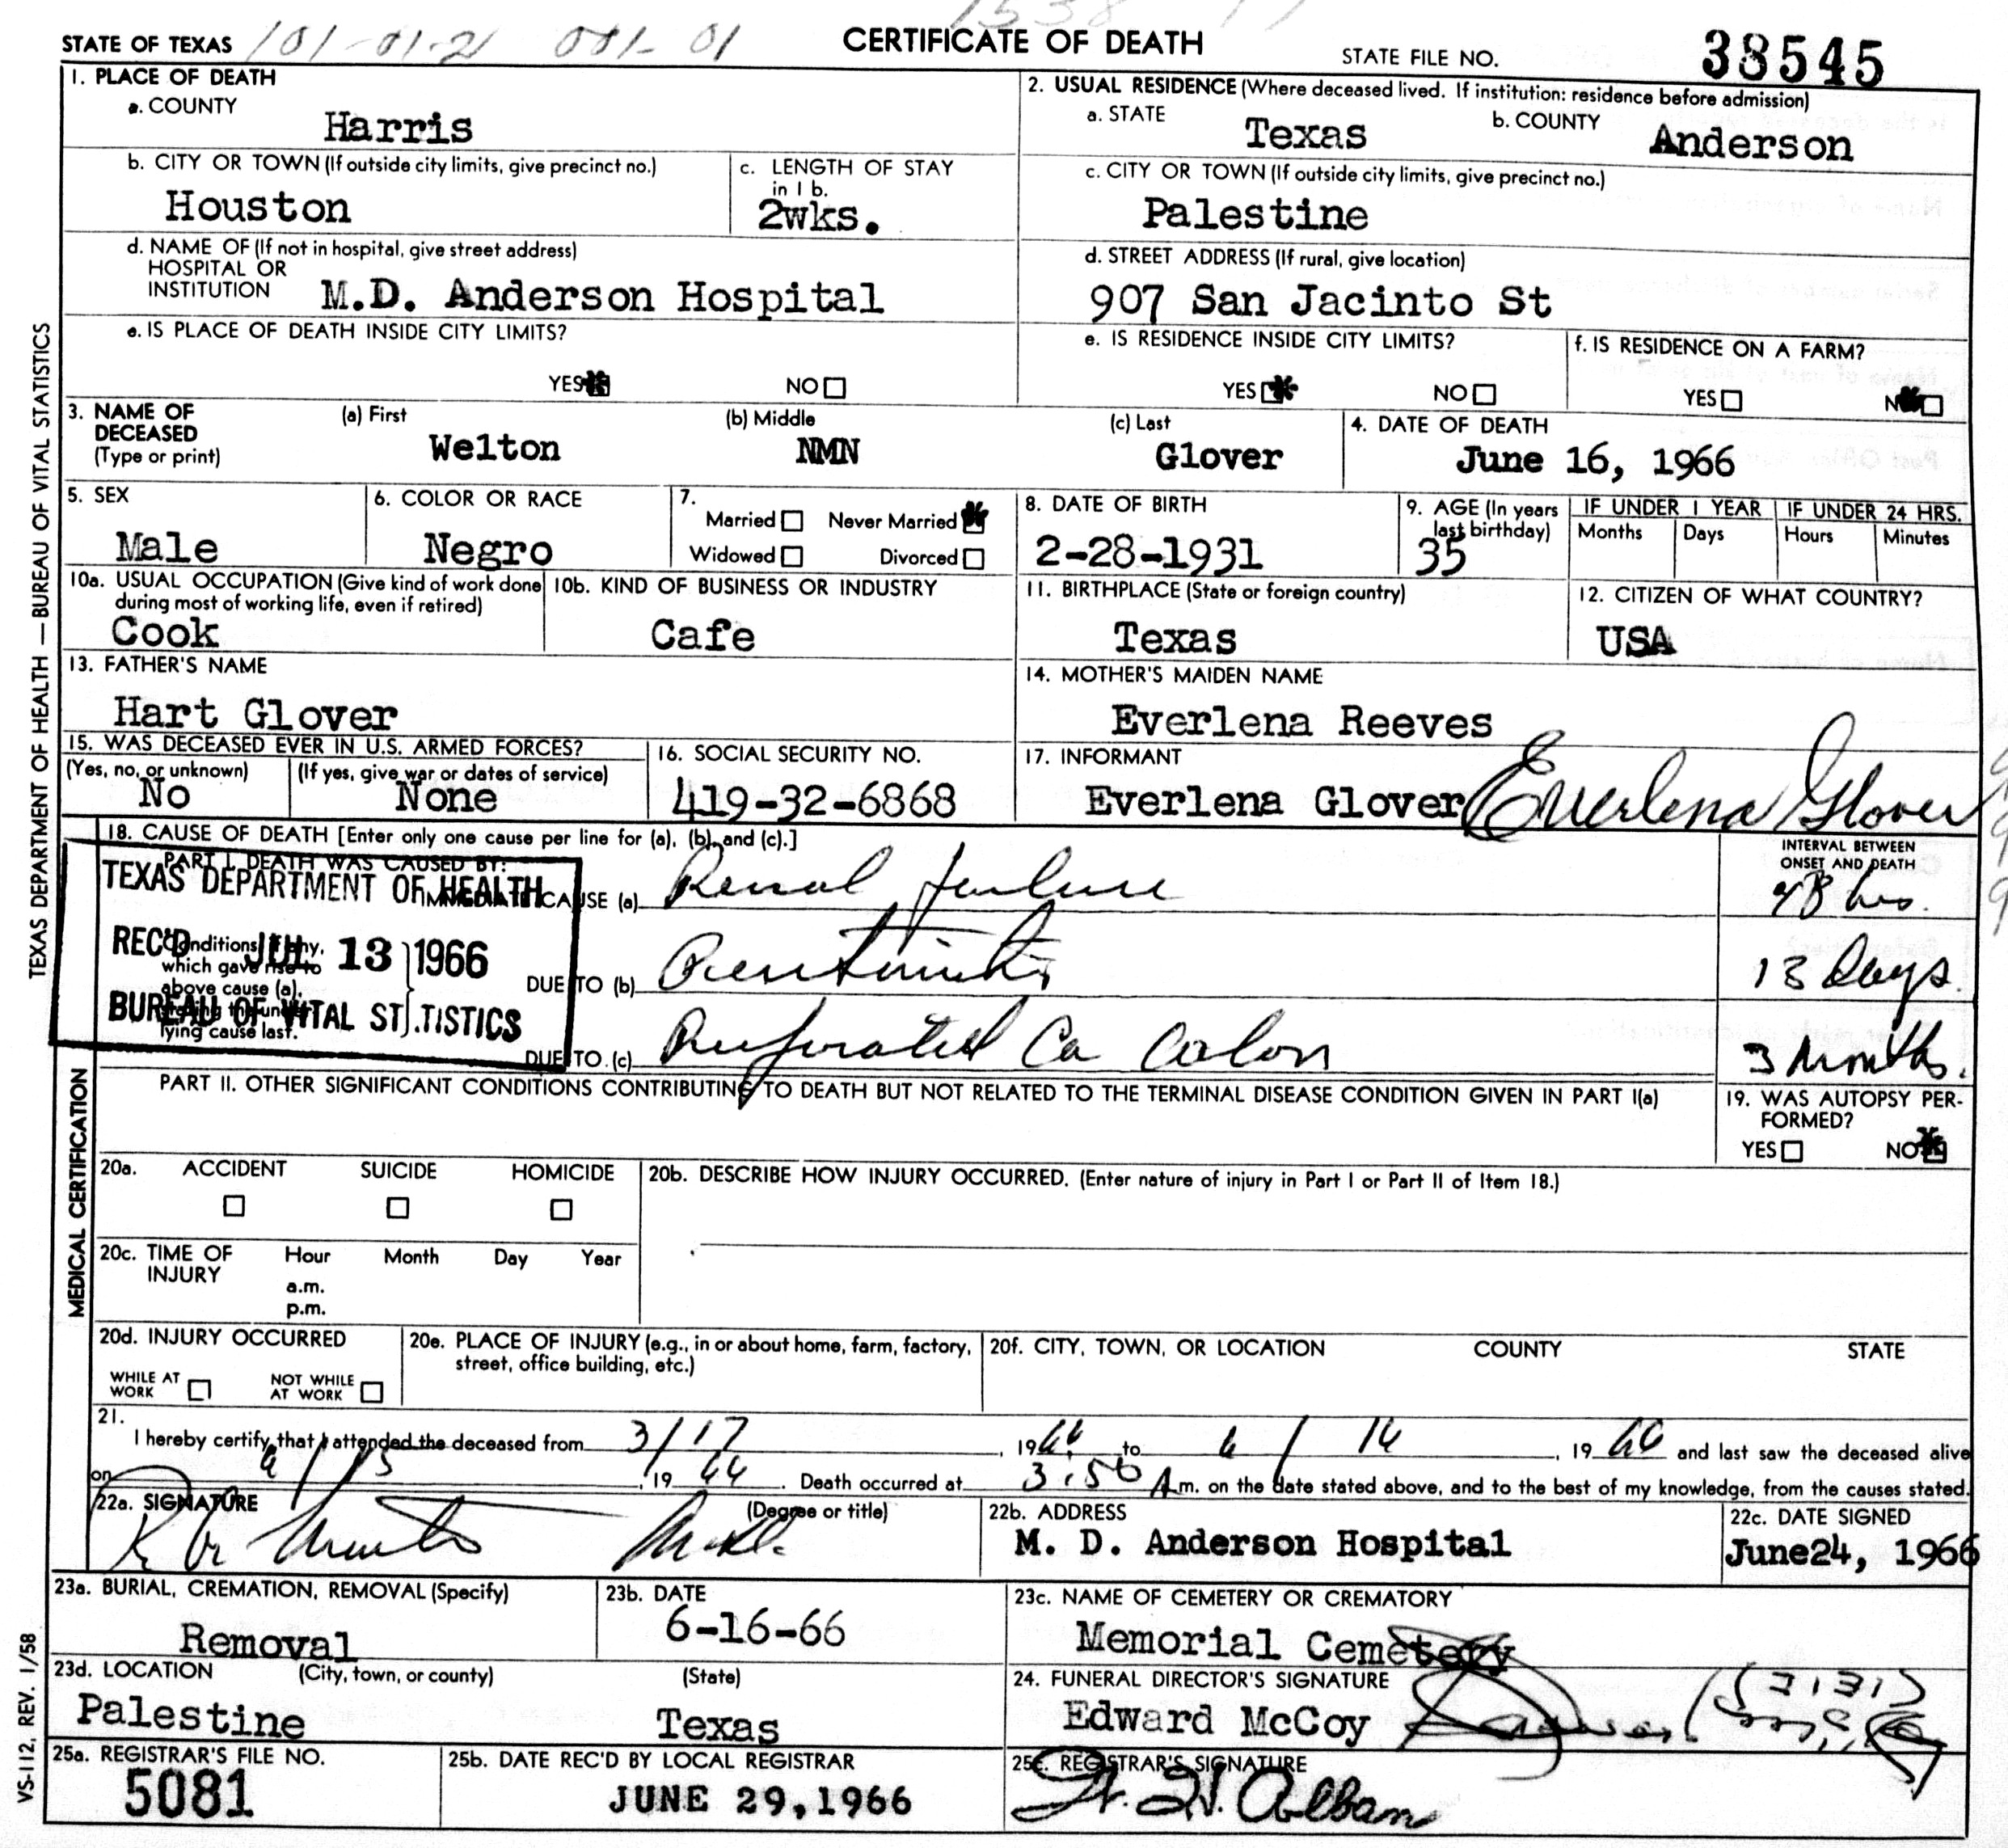 STATE OF TEXAS 101-01-2 001-01 CERTIFICATE OF DEATH STATE FILE NO. 38545
1. PLACE OF DEATH
a. COUNTY
Harris
2. USUAL RESIDENCE (Where deceased lived. If institution: residence before admission)
a. STATE Texas b. COUNTY Anderson
b. CITY OR TOWN (If outside city limits, give precinct no.)
Houston
c. LENGTH OF STAY
in 1 b.
2wks.
c. CITY OR TOWN (If outside city limits, give precinct no.)
Palestine
d. NAME OF (If not in hospital, give street address)
HOSPITAL OR
INSTITUTION M.D. Anderson Hospital
d. STREET ADDRESS (If rural, give location)
907 San Jacinto St
e. IS PLACE OF DEATH INSIDE CITY LIMITS?
YES NO
e. IS RESIDENCE INSIDE CITY LIMITS?
YES NO
f. IS RESIDENCE ON A FARM?
YES NO
3. NAME OF
DECEASED
(Type or print)
(a) First
Welton
(b) Middle
NMN
(c) Last
Glover
4. DATE OF DEATH
June 16, 1966
5. SEX
Male
6. COLOR OR RACE
Negro
7.
Married Never Married
Widowed Divorced
8. DATE OF BIRTH
2-28-1931
9. AGE (In years
last birthday)
35
IF UNDER 1 YEAR
Months Days
IF UNDER 24 HRS.
Hours Minutes
10a. USUAL OCCUPATION (Give kind of work done
during most of working life, even if retired)
Cook
10b. KIND OF BUSINESS OR INDUSTRY
Cafe
11. BIRTHPLACE (State or foreign country)
Texas
12. CITIZEN OF WHAT COUNTRY?
USA
13. FATHER'S NAME
Hart Glover
14. MOTHER'S MAIDEN NAME
Everlena Reeves
15. WAS DECEASED EVER IN U.S. ARMED FORCES?
(Yes, no, or unknown) (If yes, give war or dates of service)
No None
16. SOCIAL SECURITY NO.
419-32-6868
17. INFORMANT
Everlena Glover Everlena Glover
18. CAUSE OF DEATH [Enter only one cause per line for (a), (b), and (c).]
INTERVAL BETWEEN
ONSET AND DEATH
PART I. DEATH WAS CAUSED BY:
TEXAS DEPARTMENT OF HEALTH
IMMEDIATE CAUSE (a) Renal failure 48 hrs.
REC'D JUL 13 1966
Conditions, if any,
which gave rise to
above cause (a),
stating the under-
lying cause last.
BUREAU OF VITAL STATISTICS
DUE TO (b) Peritonitis 13 Days
DUE TO (c) Perforated Ca Colon 3 Months.
PART II. OTHER SIGNIFICANT CONDITIONS CONTRIBUTING TO DEATH BUT NOT RELATED TO THE TERMINAL DISEASE CONDITION GIVEN IN PART I(a)
19. WAS AUTOPSY PER-
FORMED?
YES NO
20a. ACCIDENT SUICIDE HOMICIDE
20b. DESCRIBE HOW INJURY OCCURRED. (Enter nature of injury in Part I or Part II of Item 18.)
20c. TIME OF
INJURY
Hour Month Day Year
a.m.
p.m.
20d. INJURY OCCURRED
WHILE AT
WORK
NOT WHILE
AT WORK
20e. PLACE OF INJURY (e.g., in or about home, farm, factory,
street, office building, etc.)
20f. CITY, TOWN, OR LOCATION COUNTY STATE
21.
I hereby certify that I attended the deceased from 3/17, 1966 to 6/16, 1966 and last saw the deceased alive
on 6/15, 1966. Death occurred at 3:50 A.m. on the date stated above, and to the best of my knowledge, from the causes stated.
22a. SIGNATURE (Degree or title)
22b. ADDRESS
M. D. Anderson Hospital
22c. DATE SIGNED
June24, 1966
23a. BURIAL, CREMATION, REMOVAL (Specify)
Removal
23b. DATE
6-16-66
23c. NAME OF CEMETERY OR CREMATORY
Memorial Cemetery
23d. LOCATION (City, town, or county) (State)
Palestine Texas
24. FUNERAL DIRECTOR'S SIGNATURE
Edward McCoy
25a. REGISTRAR'S FILE NO.
5081
25b. DATE REC'D BY LOCAL REGISTRAR
JUNE 29, 1966
25c. REGISTRAR'S SIGNATURE
TEXAS DEPARTMENT OF HEALTH — BUREAU OF VITAL STATISTICS
MEDICAL CERTIFICATION
VS-112, REV. 1/58